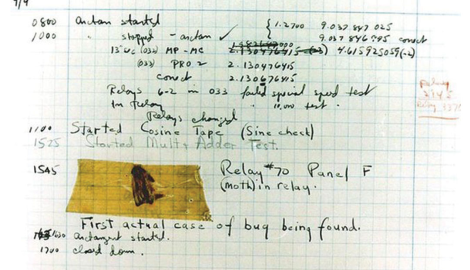 9/9
0800 antan started
1000 " stopped - antan ✓ { 1.2700 9.037 847 025
9.037 846 995 correct
13"uc (032) MP-MC 4.615925059(-2)
(033) PRO 2 2.130476415
correct 2.130676415
Relays 6-2 in 033 failed special speed test
In Relay 10,000 test.
Relays changed
Relay
1100 Started Cosine Tape (Sine check)
1525 Started Mult+Adder Test.
1545 Relay #70 Panel F
(moth) in relay.
First actual case of bug being found.
antangent started.
1700 closed down.